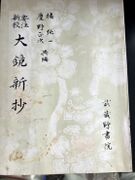 橘純一
慶野正次 共編
新校
大鏡新抄
武蔵野書院